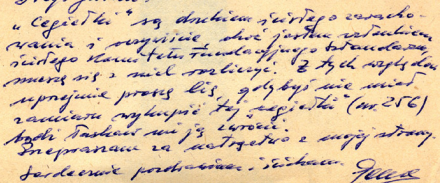 "Cegiełki" są drukiem ścisłego zarachowania i oczywiście choć jestem członkiem
ścisłego Komitetu Fundacyjnego Sztandaru,
muszę się z nich rozliczyć. Z tych względów
uprzejmie proszę Cię, gdybyś nie miał
zamiaru wykupić tej "cegiełki" (nr. 256)
bądź łaskaw mi ją zwrócić.
Przepraszam za natręctwo z mojej strony
Serdecznie pozdrawiam i ściskam.